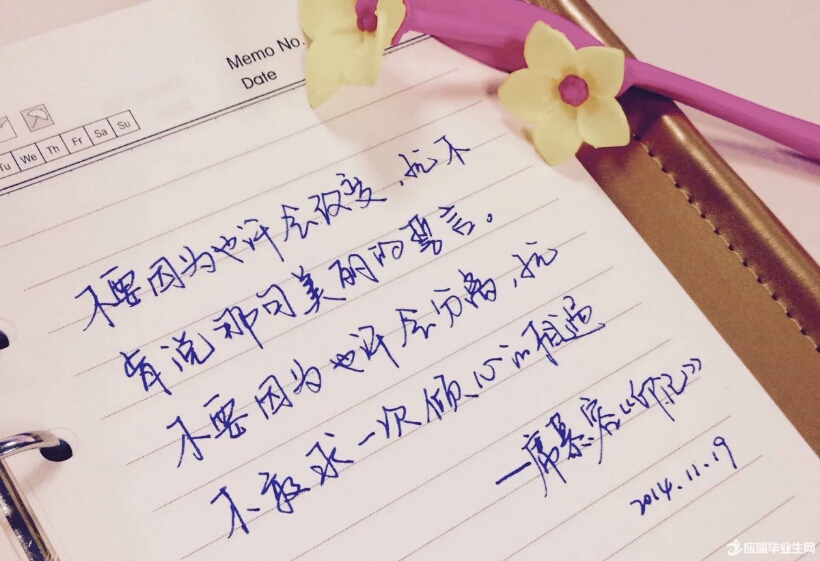 Memo No.
Date
Tu We Th Fr Sa Su
不要因为也许会改变,就不
肯说那句美丽的誓言。
不要因为也许会分离,就
不敢求一次倾心的相遇
—席慕容《印记》
2014.11.19
应届毕业生网